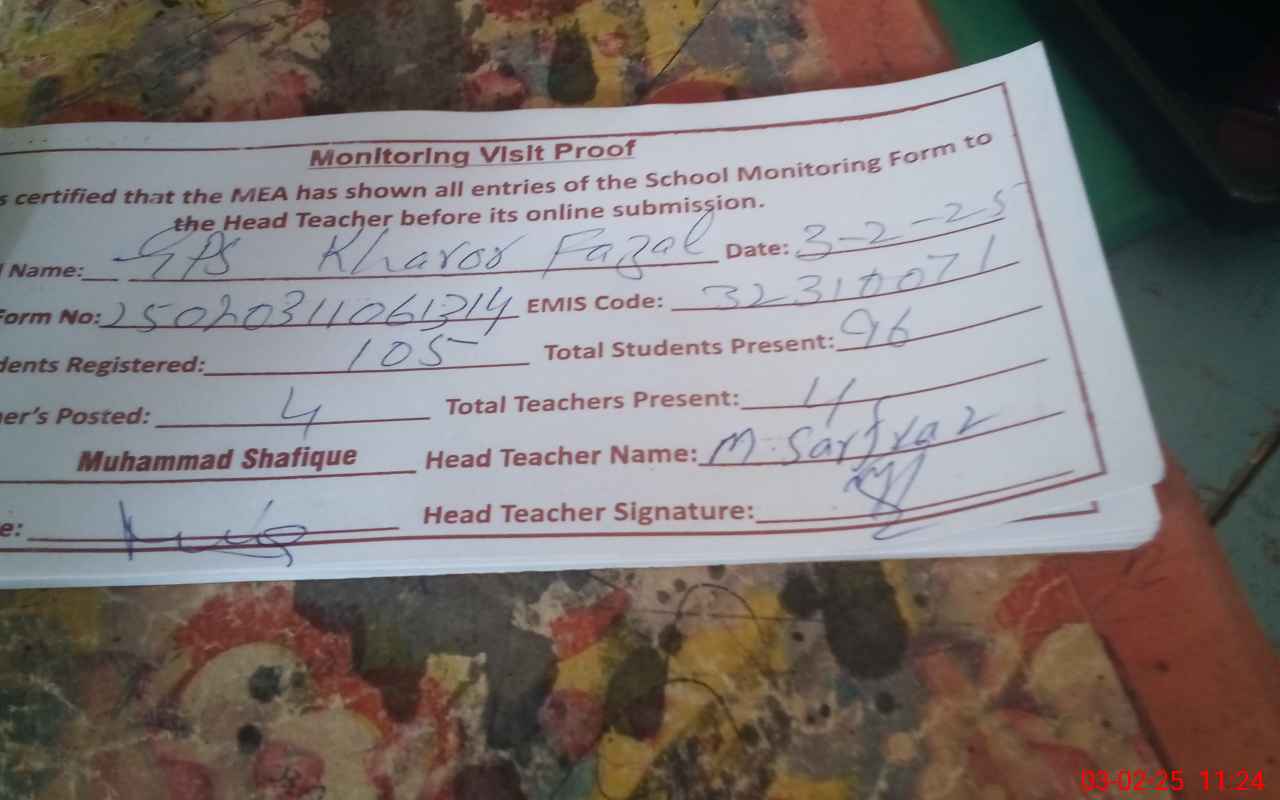 Monitoring Visit Proof
s certified that the MEA has shown all entries of the School Monitoring Form to
the Head Teacher before its online submission.
l Name: GPS Kharor Fazal Date: 3-2-25
Form No: 25020311061314 EMIS Code: 32310071
dents Registered: 105 Total Students Present: 96
her's Posted: 4 Total Teachers Present: 4
Muhammad Shafique Head Teacher Name: M. Sarfraz
e: Head Teacher Signature:
03-02-25 11:24